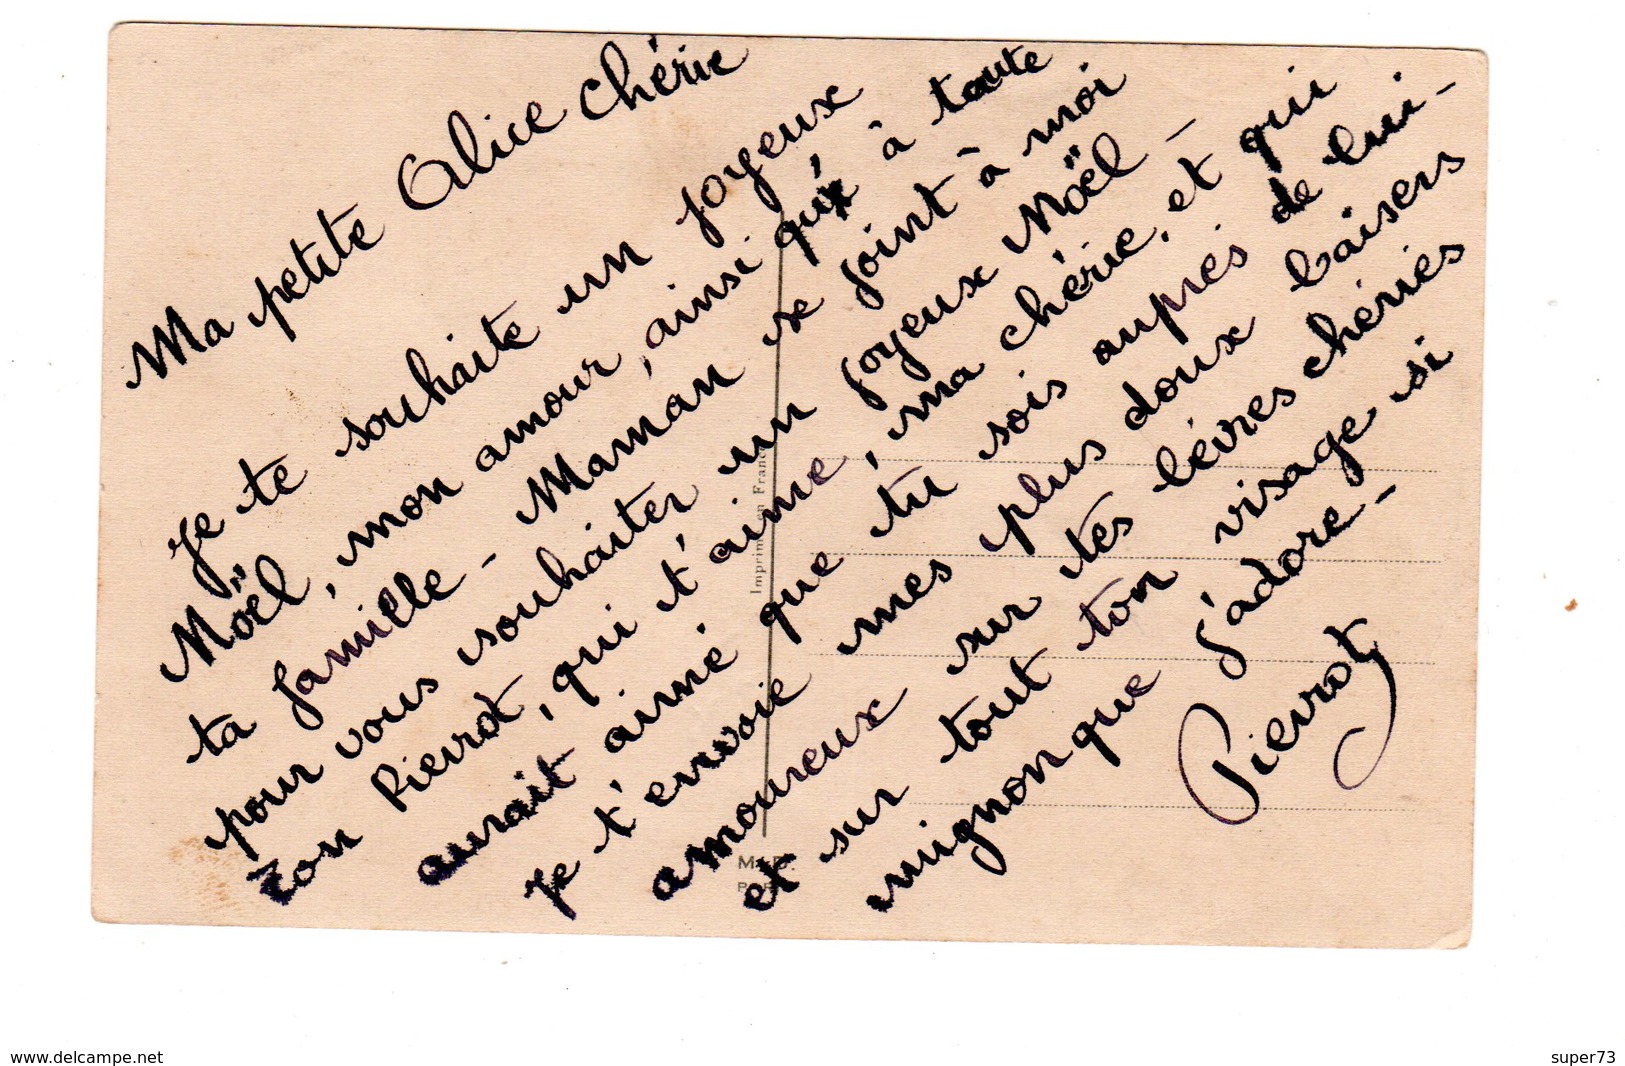 Ma petite Alice chérie
Je te souhaite un joyeux
Noël, mon amour, ainsi qu'à toute
ta famille - Maman se joint à moi
pour vous souhaiter un joyeux Noël -
Ton Pierrot, qui t'aime, ma chérie, et qui
aurait aimé que tu sois auprès de lui -
je t'envoie mes plus doux baisers
amoureux sur tes lèvres chéries
et sur tout ton visage si
mignon que j'adore -
Pierrot
www.delcampe.net
super73